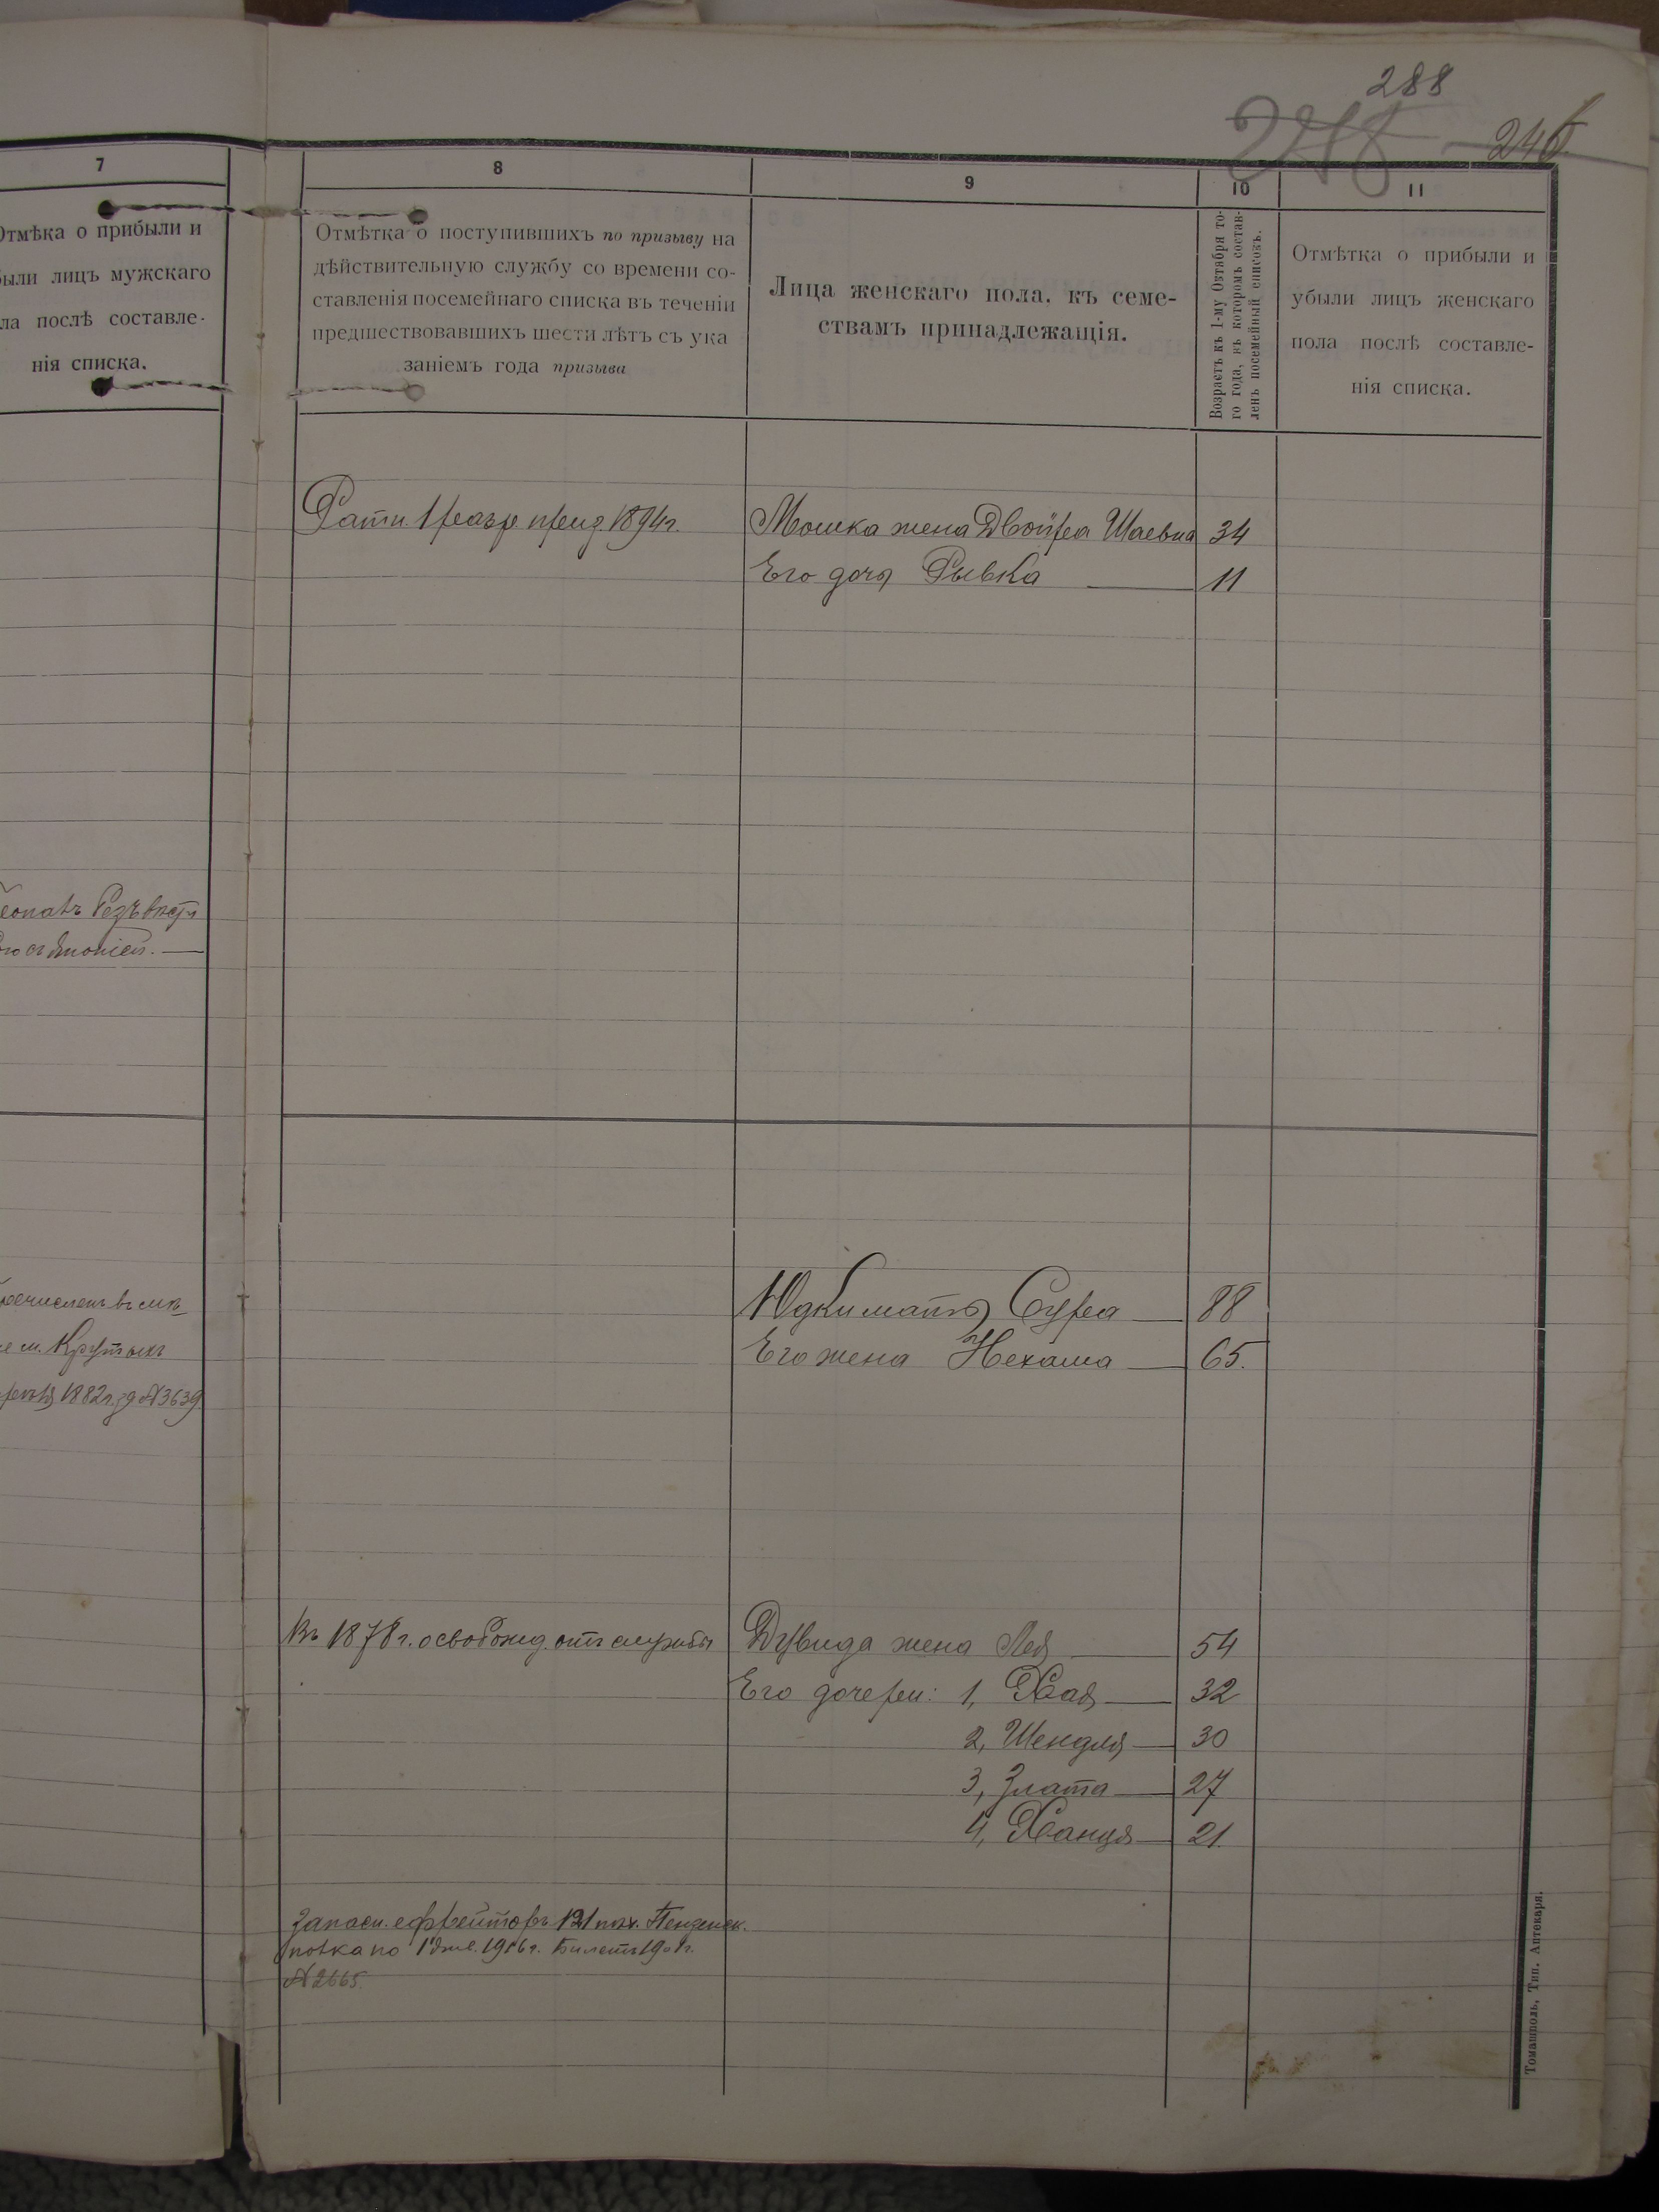 288
246
7
Отмѣка о прибыли и
были лицъ мужскаго
ла послѣ составле-
нія списка.
8
Отмѣтка о поступившихъ по призыву на
дѣйствительную службу со времени со-
ставленія посемейнаго списка въ теченіи
предшествовавшихъ шести лѣтъ съ ука
заніемъ года призыва
9
Лица женскаго пола, къ семе-
ствамъ принадлежащія.
10
Возрастъ къ 1-му Октября то-
го года, въ которомъ состав-
ленъ посемейный списокъ.
11
Отмѣтка о прибыли и
убыли лицъ женскаго
пола послѣ составле-
нія списка.
Ратн. 1 разр. 1894г.
Мошка жена Двойра Шаевна 34
Его дочь Рывка 11
Юдки мать Сура 88
Его жена Нехама 65.
м. Крутыхъ
1882г. за №3639
Въ 1878г. освобожд. отъ службы
Дувида жена Лея 54
Его дочери: 1, Хая 32
2, Шендля 30
3, Злата 27
4, Ханця 21.
Запасн. ефрейторъ 121 пѣх. Пензенск.
полка по 1 1906г. Билетъ 190 г.
№ 2665.
Томашполь, Тип. Аптекаря.